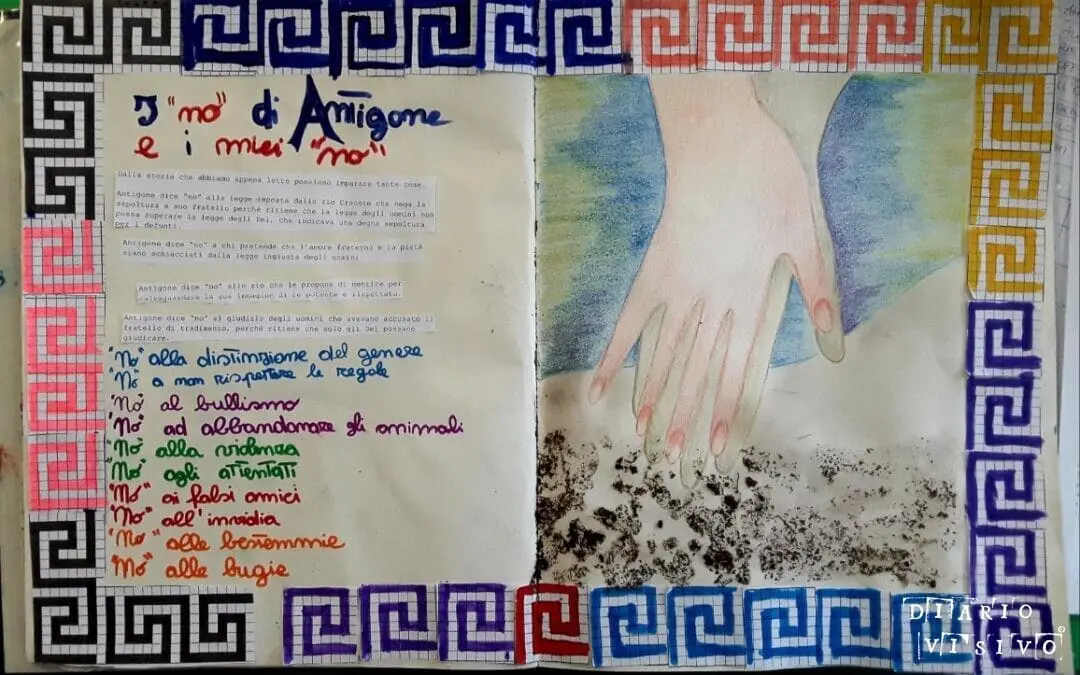 I "no" di Antigone
e i miei "no"
Dalla storia che abbiamo appena letto possiamo imparare tante cose.
Antigone dice "no" alla legge imposta dallo zio Creonte che nega la
sepoltura a suo fratello perché ritiene che la legge degli uomini non
possa superare la legge degli Dei, che indicava una degna sepoltura
per i defunti.
Antigone dice "no" a chi pretende che l'amore fraterno e la pietà
siano schiacciati dalla legge ingiusta degli uomini
Antigone dice "no" allo zio che le propone di mentire per
salvaguardare la sua immagine di re potente e rispettato.
Antigone dice "no" al giudizio degli uomini che avevano accusato il
fratello di tradimento, perché ritiene che solo gli Dei possano
giudicare.
"No" alla distinzione del genere
"No" a non rispettare le regole
"No" al bullismo
"No" ad abbandonare gli animali
"No" alla violenza
"No" agli attentati
"No" ai falsi amici
"No" all'invidia
"No" alle bestemmie
"No" alle bugie
DIARIO
VISIVO